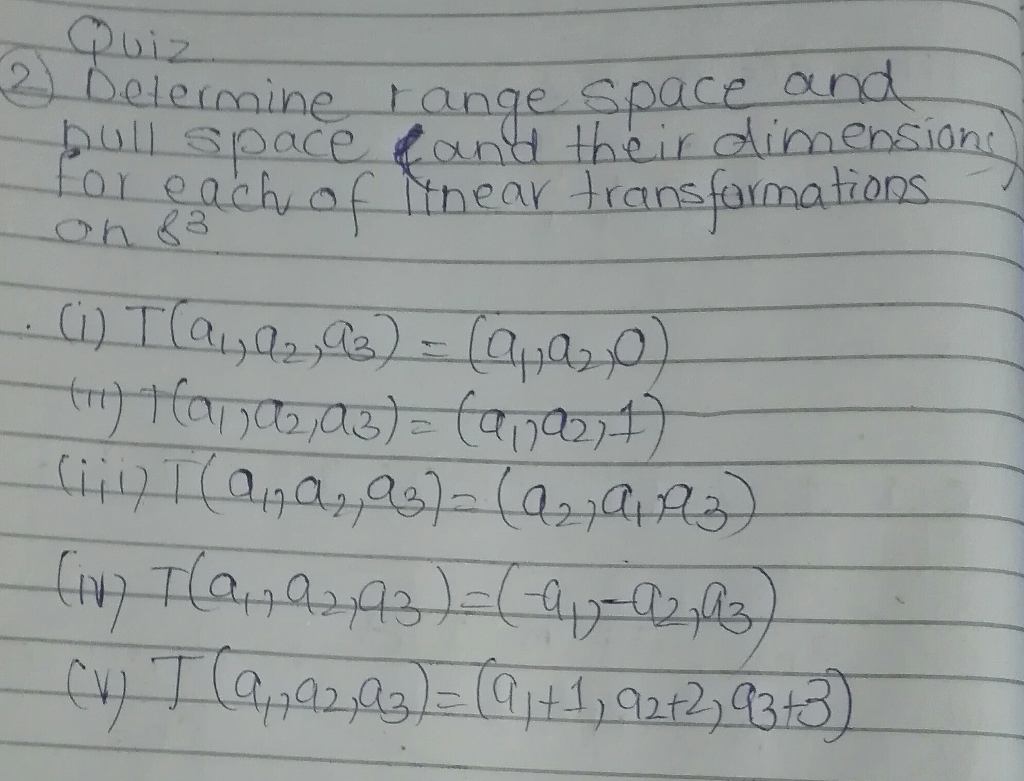 Quiz
② Determine range space and
null space (and their dimensions)
for each of linear transformations
on ß3
(i) T(a₁, a₂, a₃) = (a₁, a₂, 0)
(ii) T(a₁, a₂, a₃) = (a₁, a₂, 1)
(iii) T(a₁, a₂, a₃) = (a₂, a₁, a₃)
(iv) T(a₁, a₂, a₃) = (-a₁, -a₂, a₃)
(v) T(a₁, a₂, a₃) = (a₁+1, a₂+2, a₃+3)